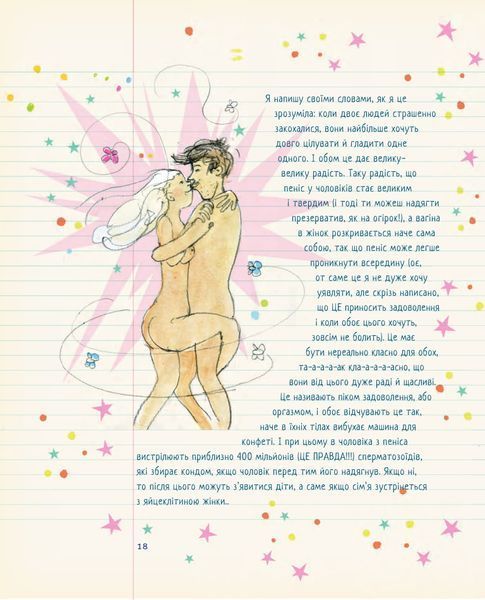 Я напишу своїми словами, як я це
зрозуміла: коли двоє людей страшенно
закохалися, вони найбільше хочуть
довго цілувати й гладити одне
одного. І обом це дає велику-
велику радість. Таку радість, що
пеніс у чоловіків стає великим
і твердим (і тоді ти можеш надягти
презерватив, як на огірок!), а вагіна
в жінок розкривається наче сама
собою, так що пеніс може легше
проникнути всередину (оє,
от саме це я не дуже хочу
уявляти, але скрізь написано,
що ЦЕ приносить задоволення
і коли обоє цього хочуть,
зовсім не болить). Це має
бути нереально класно для обох,
та-а-а-а-ак кла-а-а-а-асно, що
вони від цього дуже раді й щасливі.
Це називають піком задоволення, або
оргазмом, і обоє відчувають це так,
наче в їхніх тілах вибухає машина для
конфеті. І при цьому в чоловіка з пеніса
вистрілюють приблизно 400 мільйонів (ЦЕ ПРАВДА!!!) сперматозоїдів,
які збирає кондом, якщо чоловік перед тим його надягнув. Якщо ні,
то після цього можуть з'явитися діти, а саме якщо сім'я зустрінеться
з яйцеклітиною жінки..
18